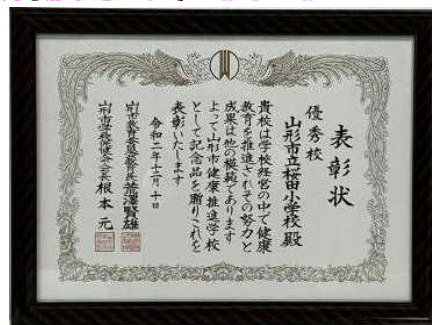 表彰状
優秀校
山形市立桜田小学校殿
貴校は学校経営の中で健康
教育を推進されその努力と
成果は他の模範であります
よって山形市健康推進学校
として記念品を贈りこれを
表彰いたします
令和二年十二月十日
山形市教育委員会教育長 荒澤賢雄
山形市学校保健会会長 根本元